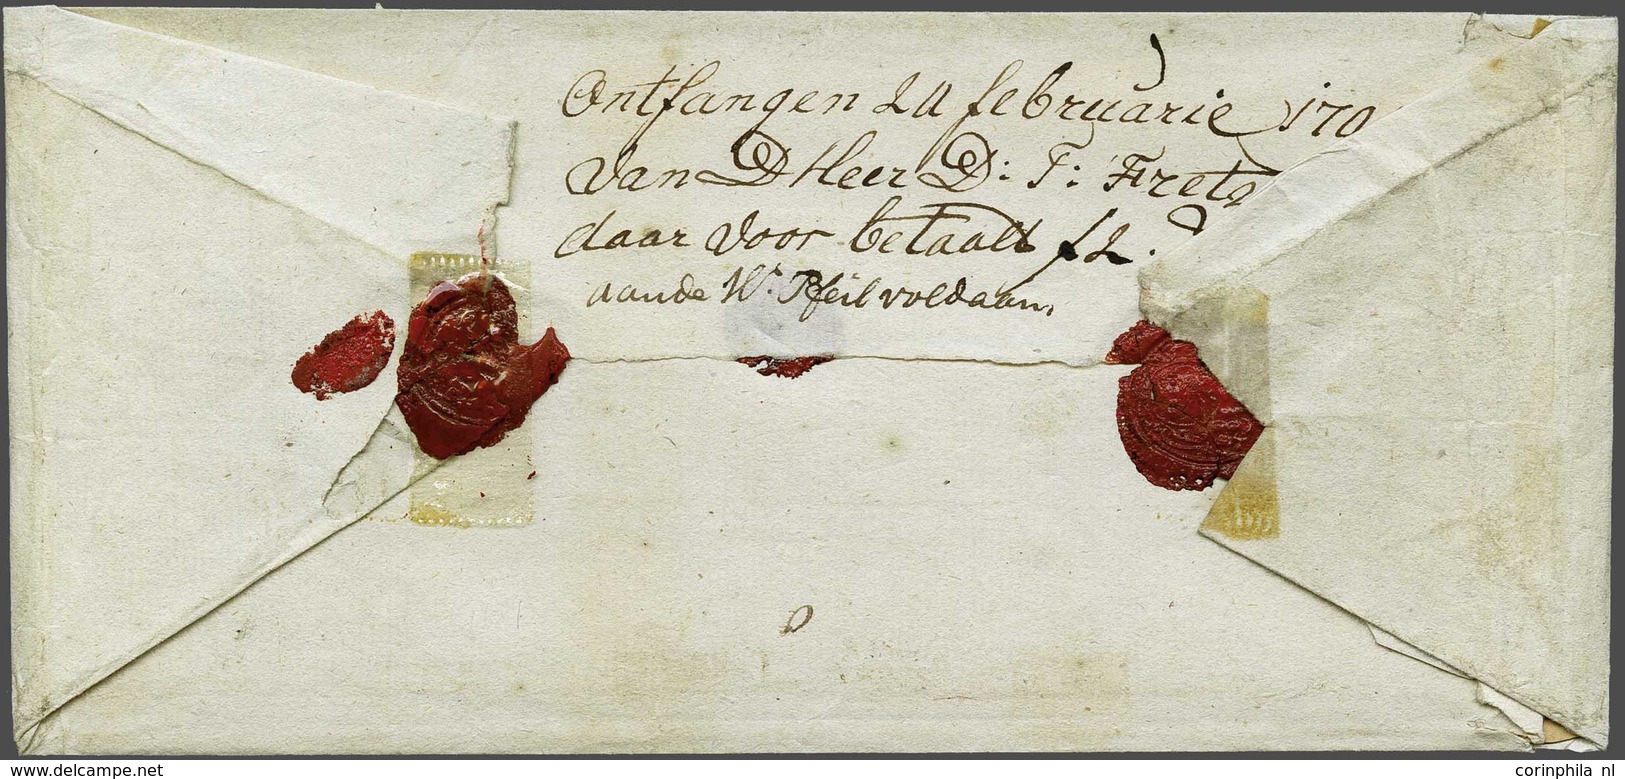 Ontfangen 20 februarie 170
Van D Heer D: T: Frets
daar Voor betaalt f 2.
aande Wr. Pfeil voldaan,
www.delcampe.net
corinphila nl